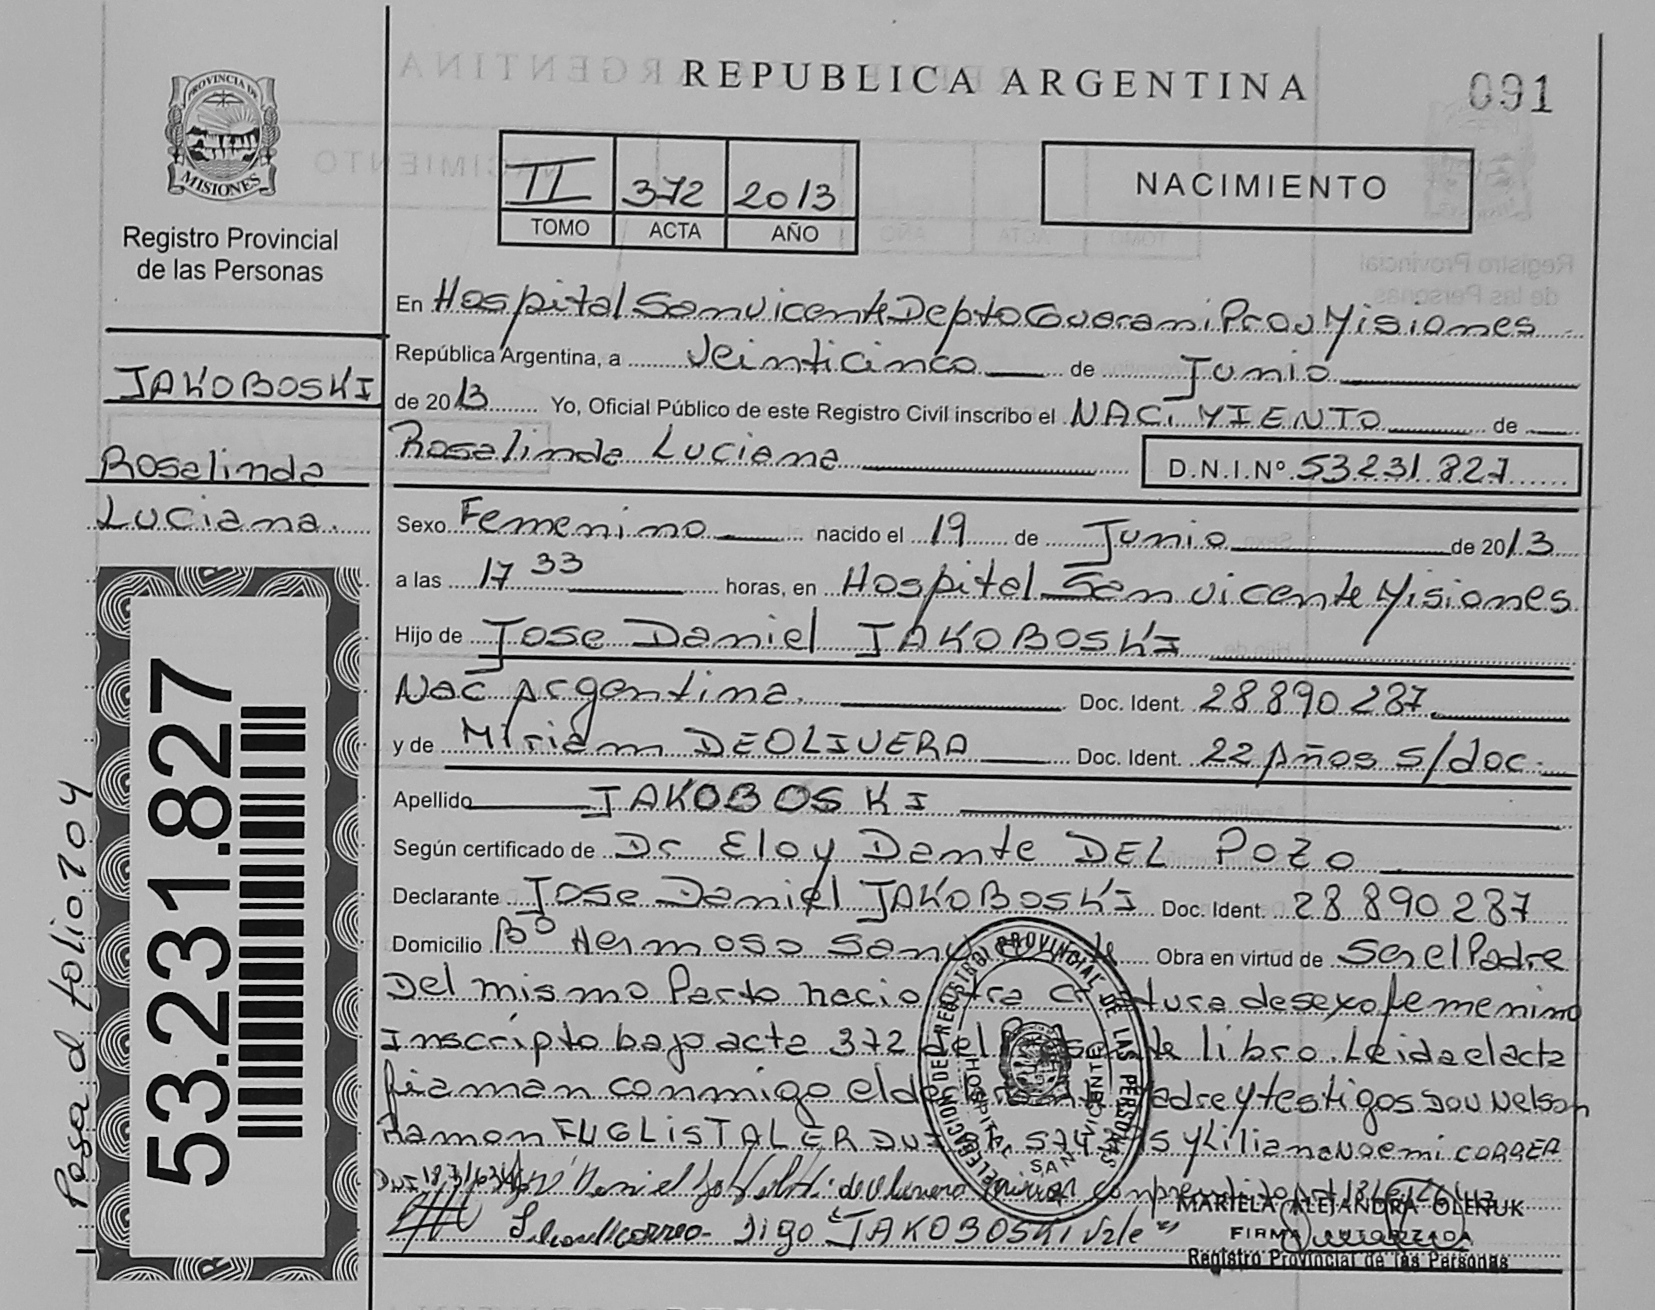 REPUBLICA ARGENTINA
091
PROVINCIA DE
MISIONES
Registro Provincial
de las Personas
II 372 2013
TOMO ACTA AÑO
NACIMIENTO
JAKOBOSKI
Roselinda
Luciana.
53.231.827
Pasa al folio 104
En Hospital San Vicente Depto Guarani Prov Misiones
República Argentina, a Veinticinco de Junio
de 2013 Yo, Oficial Público de este Registro Civil inscribo el NACIMIENTO de
Roselinda Luciana D.N.I.Nº 53.231.827
Sexo Femenino nacido el 19 de Junio de 2013
a las 17 33 horas, en Hospital San Vicente Misiones
Hijo de Jose Daniel JAKOBOSKI
Nac Argentina. Doc. Ident. 28 890 287
y de Miriam DEOLIVERA Doc. Ident. 22 Años s/doc.
Apellido JAKOBOSKI
Según certificado de Dr Eloy Dante DEL POZO
Declarante Jose Daniel JAKOBOSKI Doc. Ident. 28 890 287
Domicilio Bº Hermoso San Obra en virtud de Ser el Padre
Del mismo Parto nacio otra Criatura de sexo femenino
Inscripto bajo acta 372 del libro. Leida el acta
firman conmigo el Madre y testigos DON Nelson
Ramon FUGLISTALER DNI y Liliana Noemi CORREA
DNI
Digo "JAKOBOSKI Vale"
DELEGACION DEL REGISTRO PROVINCIAL DE LAS PERSONAS
HOSPITAL SAN VICENTE
MARIELA ALEJANDRA OLENUK
FIRMA AUTORIZADA
Registro Provincial de las Personas